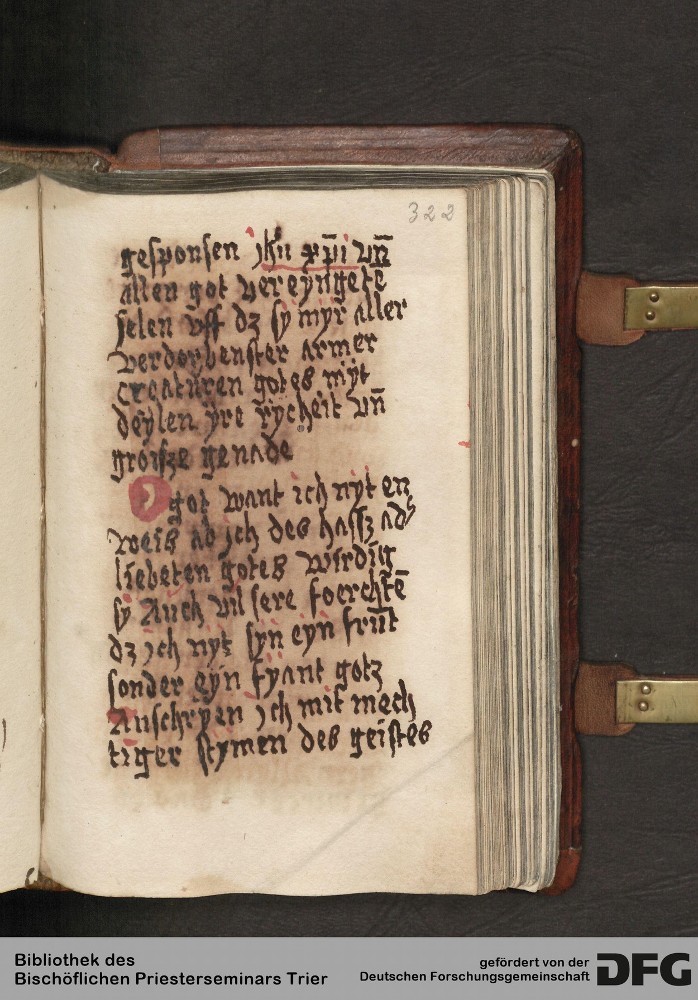 322
gesponsen jhu xp̄i vn̄
allen got vereyngete
selen vff dz sy myr aller
verdorbenster armer
creaturen gotes myt
deylen yre rycheit vn̄
groisze genade
O got want ich nyt en
weis ab ich des hassz ad
liebeten gotes wirdig
sy Auch vil sere foerchtē
dz ich nyt syn eyn frūt
sonder eyn fyant gotz
Anschryen ich mit mech
tiger stymen des geistes
Bibliothek des
Bischöflichen Priesterseminars Trier
gefördert von der
Deutschen Forschungsgemeinschaft
DFG